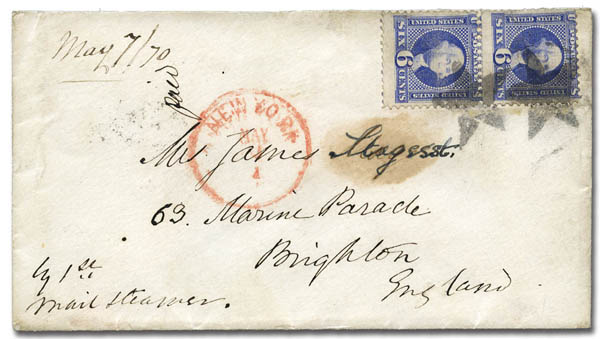 May 7/70
paid
UNITED STATES
SIX 6 CENTS
UNITED STATES
U.S. POSTAGE
SIX 6 CENTS
NEW YORK
MAY
Mr James
63. Marine Parade
Brighton
England
by 1st
mail steamer.